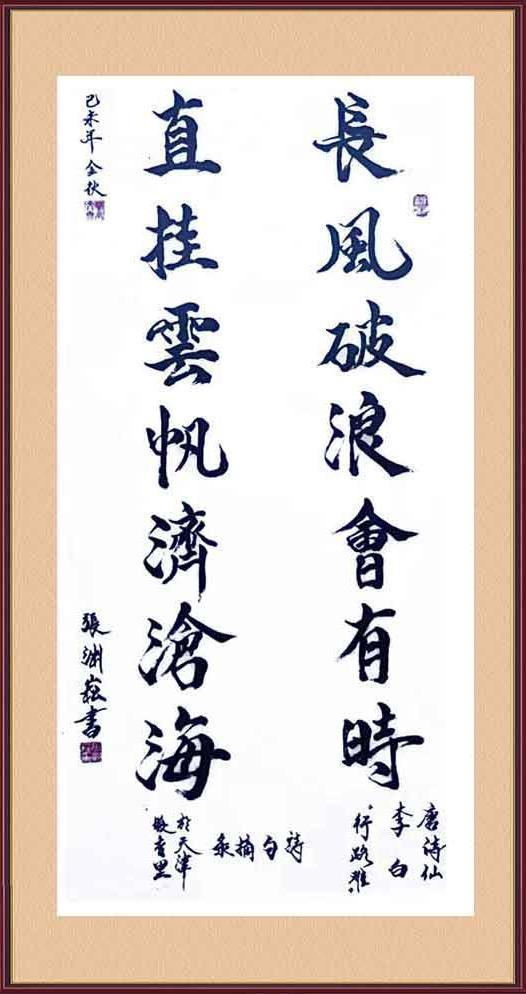 長風破浪會有時
直挂雲帆濟滄海
唐詩仙
李白
“行路難”
詩句摘錄
於天津
敬書里
己未年金秋
張淵崧書